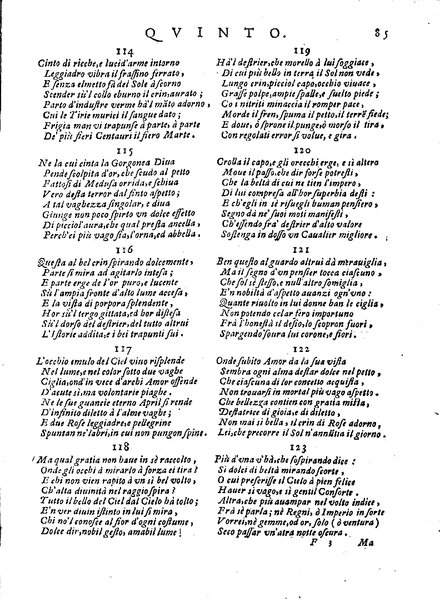 QVINTO. 85
114
Cinto di ricche, e lucid'arme intorno
Leggiadro vibra il frassino ferrato,
E senza elmetto fà del Sole à scorno
Scender sù'l collo eburno il crin, aurato;
Parto d'industre verme hà'l mãto adorno,
Cui le Tirie murici il sangue dato;
Frigia man vi trapunse à parte, à parte,
De' più fieri Centauri il fiero Marte.
115
Ne la cui cinta la Gorgonea Diua
Pende scolpita d'or, che scudo al petto
Fattosi di Medusa orrida, e schiua
Vero desta terror dal finto aspetto;
A tal vaghezza singolar, e diua
Giunge non poco spirto un dolce effetto
Di picciol'aura, che qual presta ancella,
Perch'ei più vago sia, l'orna, ed abbella.
116
Questa al bel crin spirando dolcemente,
Parte si mira ad agitarlo intesa;
E parte erge de l'or puro, e lucente
Sù l'ampia fronte d'alto lume accesa,
E la vista di porpora splendente,
Hor sù'l tergo gittata, ed hor distesa
Sù'l dorso del destrier, del tutto altrui
L'Istorie addita, e i bei trapunti sui.
117
L'occhio emulo del Ciel vino risplende
Nel lume, e nel color sotto due vaghe
Ciglia, ond'in vece d'archi Amor offende
D'acute sì, ma volontarie piaghe.
Ne le sue guancie eterno April si rende
D'infinito diletto à l'alme vaghe;
E due Rose leggiadre, e pellegrine
Spuntan ne' labri, in cui non pungon spine.
118
Ma qual gratia non haue in sè raccolto,
Onde gli occhi à mirarlo à forza ei tira?
E chi non vien rapito à un sì bel volto,
Ch'alta diuinità nel raggio spira?
Tutto il bello del Ciel dal Cielo hà tolto;
E'n ver diuin istinto in lui si mira,
Chi no'l conosce al fior d'ogni costume,
Dolce dir, nobil gesto, amabil lume!
119
Hà'l destrier, che morello à lui soggiace,
Di cui più bello in terra il Sol non vede,
Lungo crin, picciol capo, occhio viuace,
Grasse polpe, ampie spalle, e suelto piede;
Co i nitriti minaccia il romper pace,
Morde il fren, spuma il petto, il terrẽ fiede;
E doue, ò sprone il punge, ò morso il tira,
Con regolati error si volue, e gira.
120
Crolla il capo, e gli orecchi erge, e sì altero
Moue il passo, che dir forse potresti,
Che la beltà di cui ne tien l'impero,
Di lui gl'ingombri il bor superbia desti:
E ch'egli in sè risuegli human pensiero,
Segno dà ne' suoi moti manifesti,
Ch'essendo frà destrier d'alto valore
Sostenga in dosso un Caualier migliore.
121
Ben questo al guardo altrui dà merauiglia,
Ma il segno d'un pensier tocca ciascuno,
Che sol si stesso, e null'altro somiglia,
E'n nobiltà d'aspetto auanzi ogn'uno:
Quante riuolto in lui donne han le ciglia,
Non potendo celar foro importuno
Frà l'honestà il desio, lo scopron fuori,
Spargendo soura lui corone, e fiori.
122
Onde subito Amor da la sua vista
Sembra ogni alma destar dolce nel petto,
Che ciascuna di lor concetto acquista,
Non trouarsi in mortal più vago aspetto.
Che bellezza contien con gratia mista,
Destatrice di gioia, e di diletto,
Non mai sì bella, il crin di Rose adorno,
Lei, che precorre il Sol n'annuntia il giorno.
123
Più d'una v'hà, che sospirando dice:
Sì dolci di beltà mirando scorte,
O cui preferisse il Cielo à pien felice
Hauer sì vago, e sì gentil Consorte.
Altra, che più auampar nel volto indice,
Frà sè parla; nè Regni, ò Imperio in sorte
Vorrei, nè gemme, od or, solo (ò ventura)
Seco passar un'atra notte oscura.
F 3 Ma